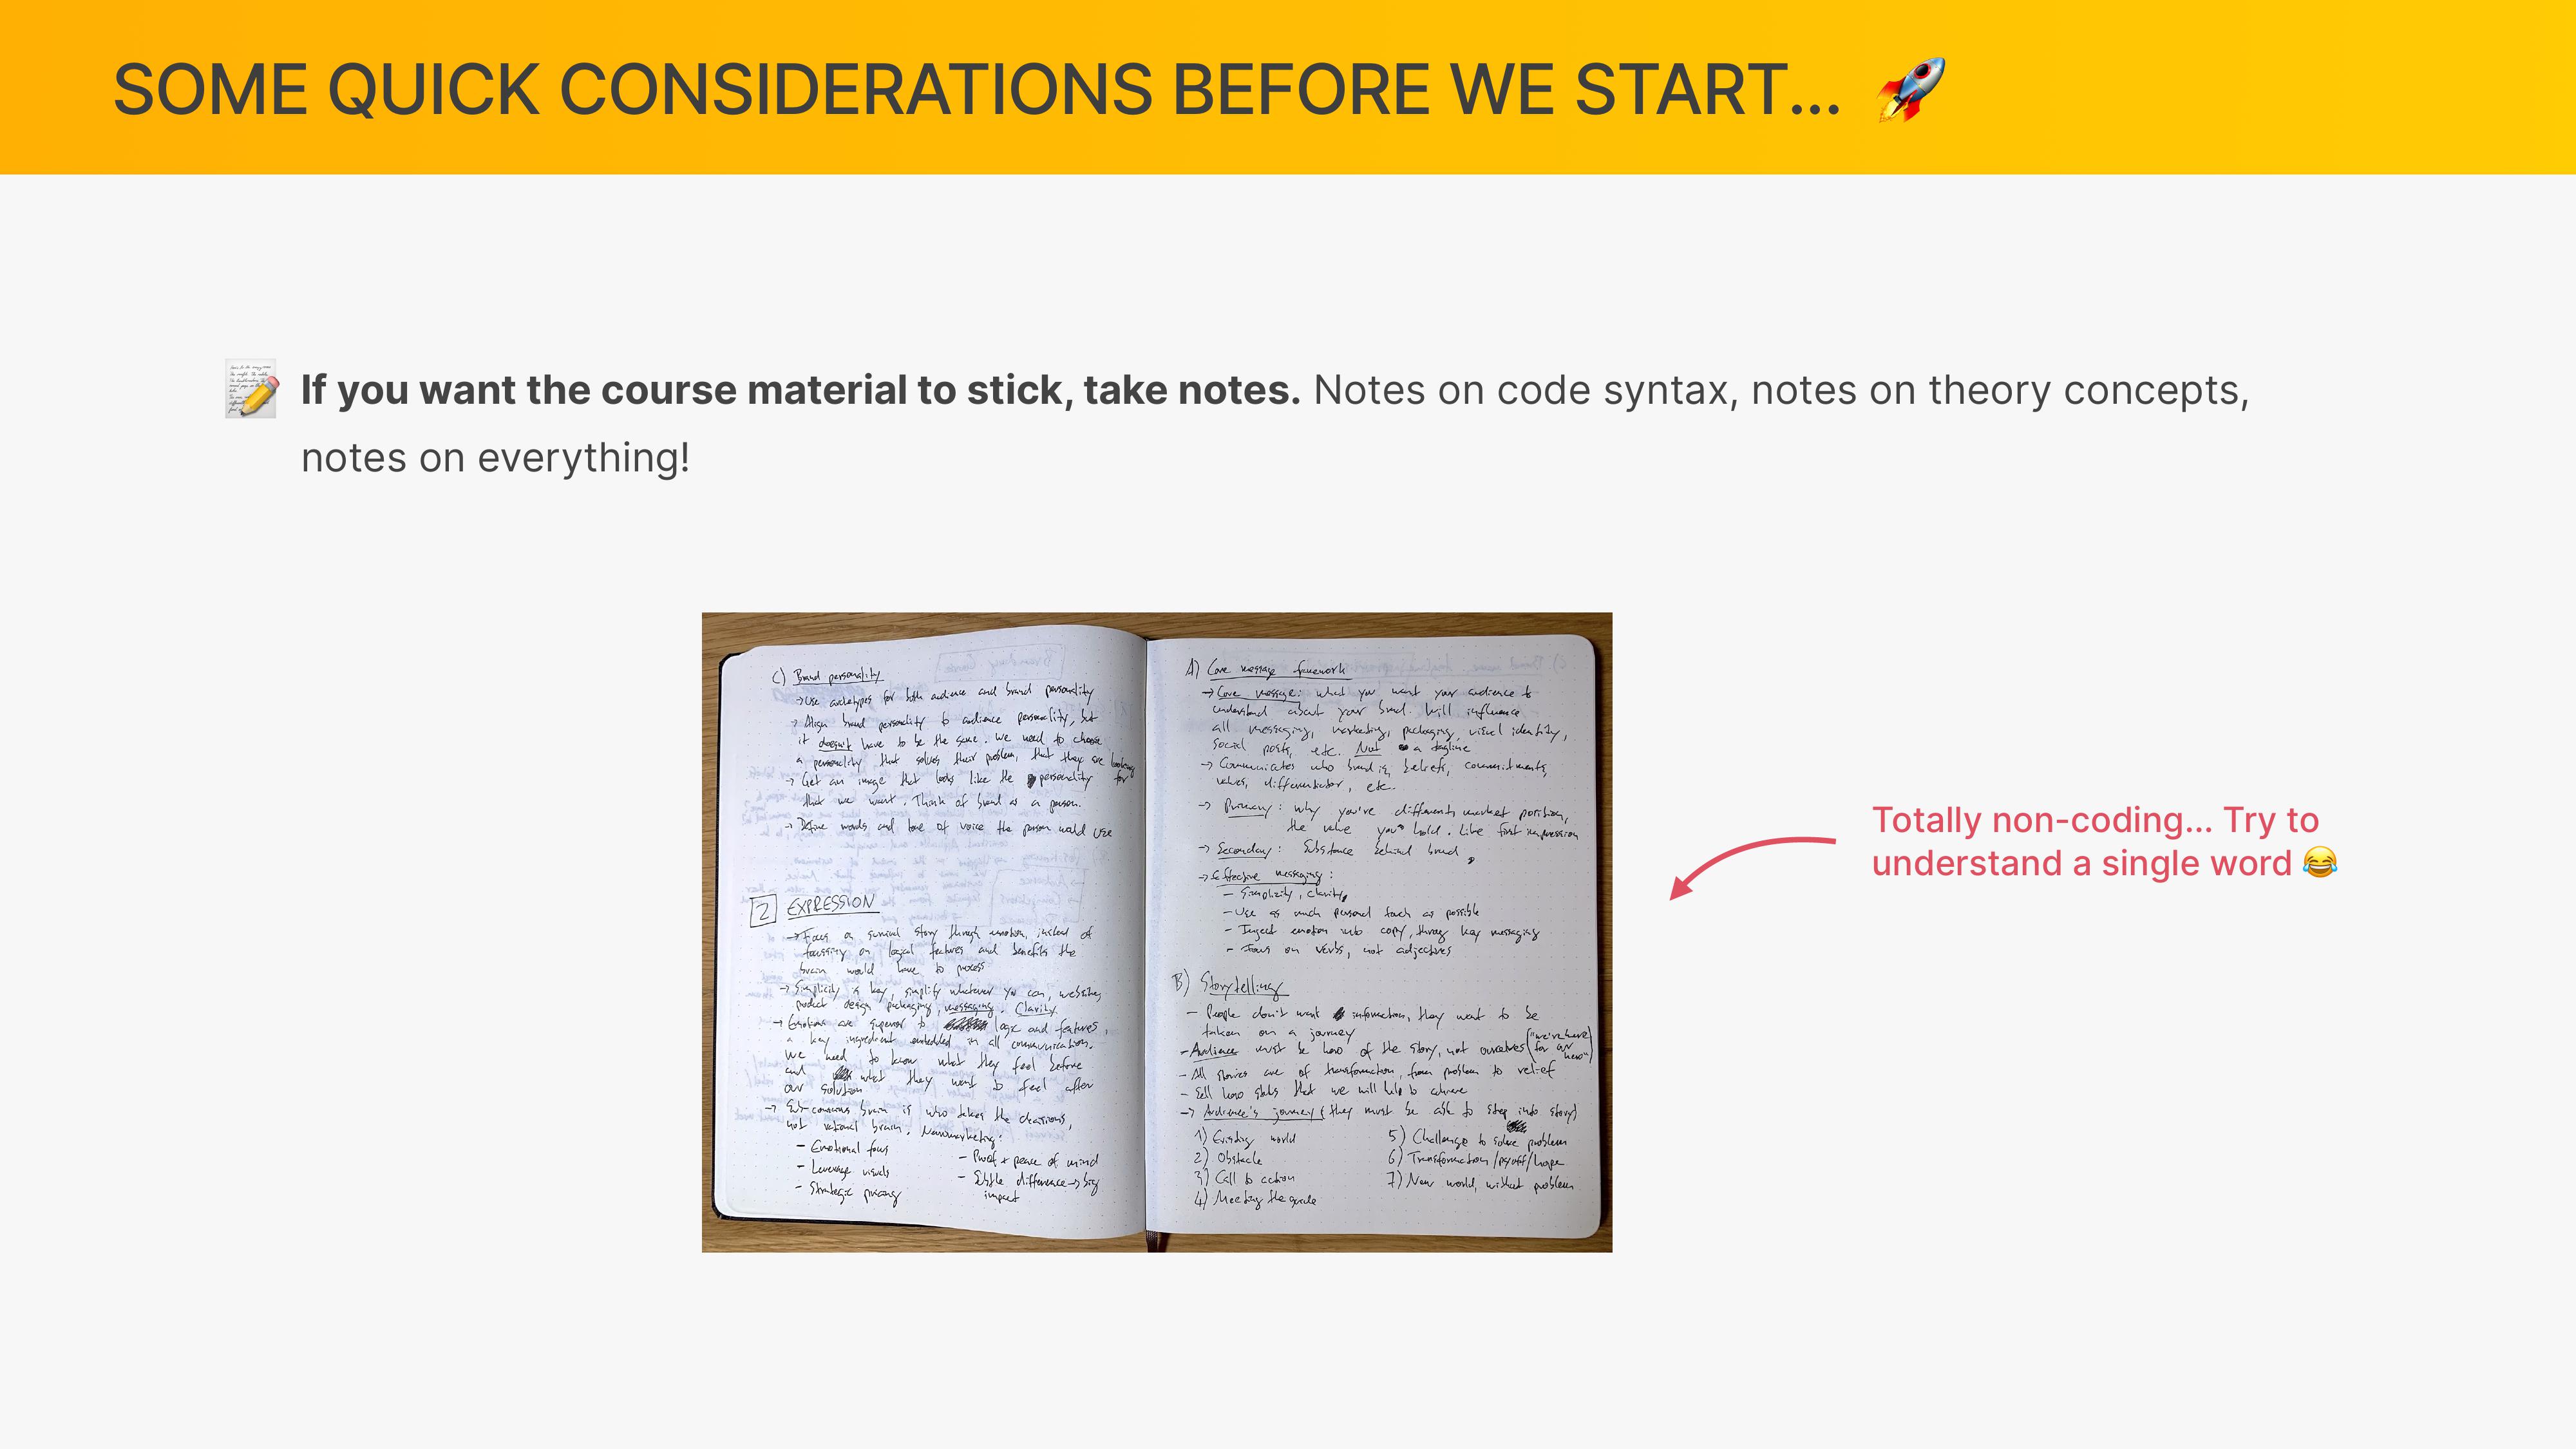 SOME QUICK CONSIDERATIONS BEFORE WE START... 🚀
If you want the course material to stick, take notes. Notes on code syntax, notes on theory concepts,
notes on everything!
C) Brand personality
→ Use archetypes for both audience and brand personality
→ Align brand personality to audience personality, but
it doesn't have to be the same. We need to choose
a personality that solves their problem, that they are looking
for
→ Get an image that looks like the personality
that we want. Think of brand as a person.
→ Define words and tone of voice the person would use
2 EXPRESSION
→ Focus on survival story through emotion, instead of
focussing on logical features and benefits the
brain would have to process
→ Simplicity is key, simplify whatever you can, websites,
product design, packaging, messaging. Clarity.
→ Emotions are superior to logic and features,
a key ingredient embedded in all communication.
We need to know what they feel before
and what they want to feel after
our solution
→ Sub-conscious brain is who takes the decisions,
not rational brain. Neuromarketing:
- Emotional focus
- Leverage visuals
- Strategic pricing
- Proof + peace of mind
- Subtle difference → big
impact
A) Core message framework
→ Core message: what you want your audience to
understand about your brand. Will influence
all messaging, marketing, packaging, visual identity,
social posts, etc. Not a tagline
→ Communicates who brand is, beliefs, commitments,
values, differentiator, etc.
→ Primary: why you're different, market position,
the value you hold. Like first impression
→ Secondary: Substance behind brand
→ Effective messaging:
- Simplicity, clarity
- Use as much personal touch as possible
- Inject emotion into copy, through key messaging
- Focus on verbs, not adjectives
B) Storytelling
- People don't want information, they want to be
taken on a journey
- Audience must be hero of the story, not ourselves ("we're here
for our
hero")
- All stories are of transformation, from problem to relief
- Sell how that we will help to achieve
→ Audience's journey (they must be able to step into story)
1) Existing world
2) Obstacle
3) Call to action
4) Meeting the guide
5) Challenge to solve problem
6) Transformation/payoff/hope
7) New world, without problem
Totally non-coding... Try to
understand a single word 😂